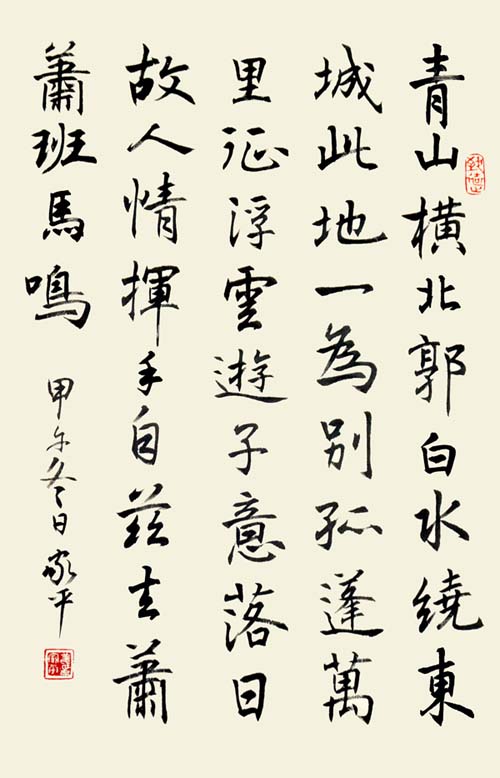 青山橫北郭白水繞東
城此地一為別孤蓬萬
里征浮雲遊子意落日
故人情揮手自茲去蕭
蕭班馬鳴
甲午冬日家平